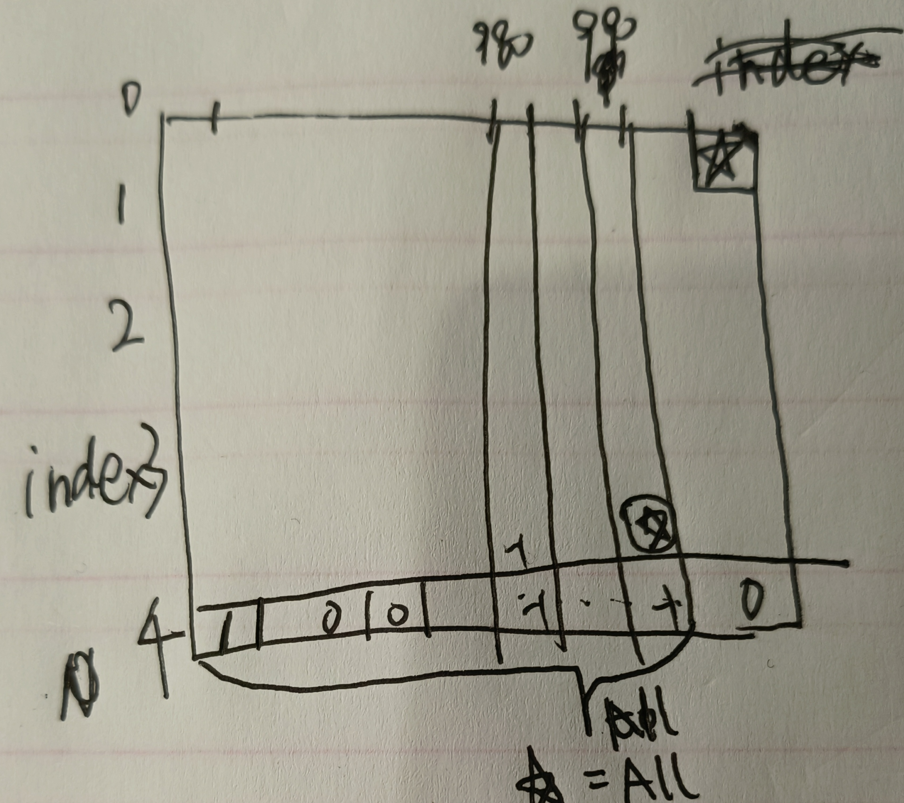 980 990 index
0
1
2
index 3
1
4 1 0 0 1 . . 1 0
N
All
☆ = All